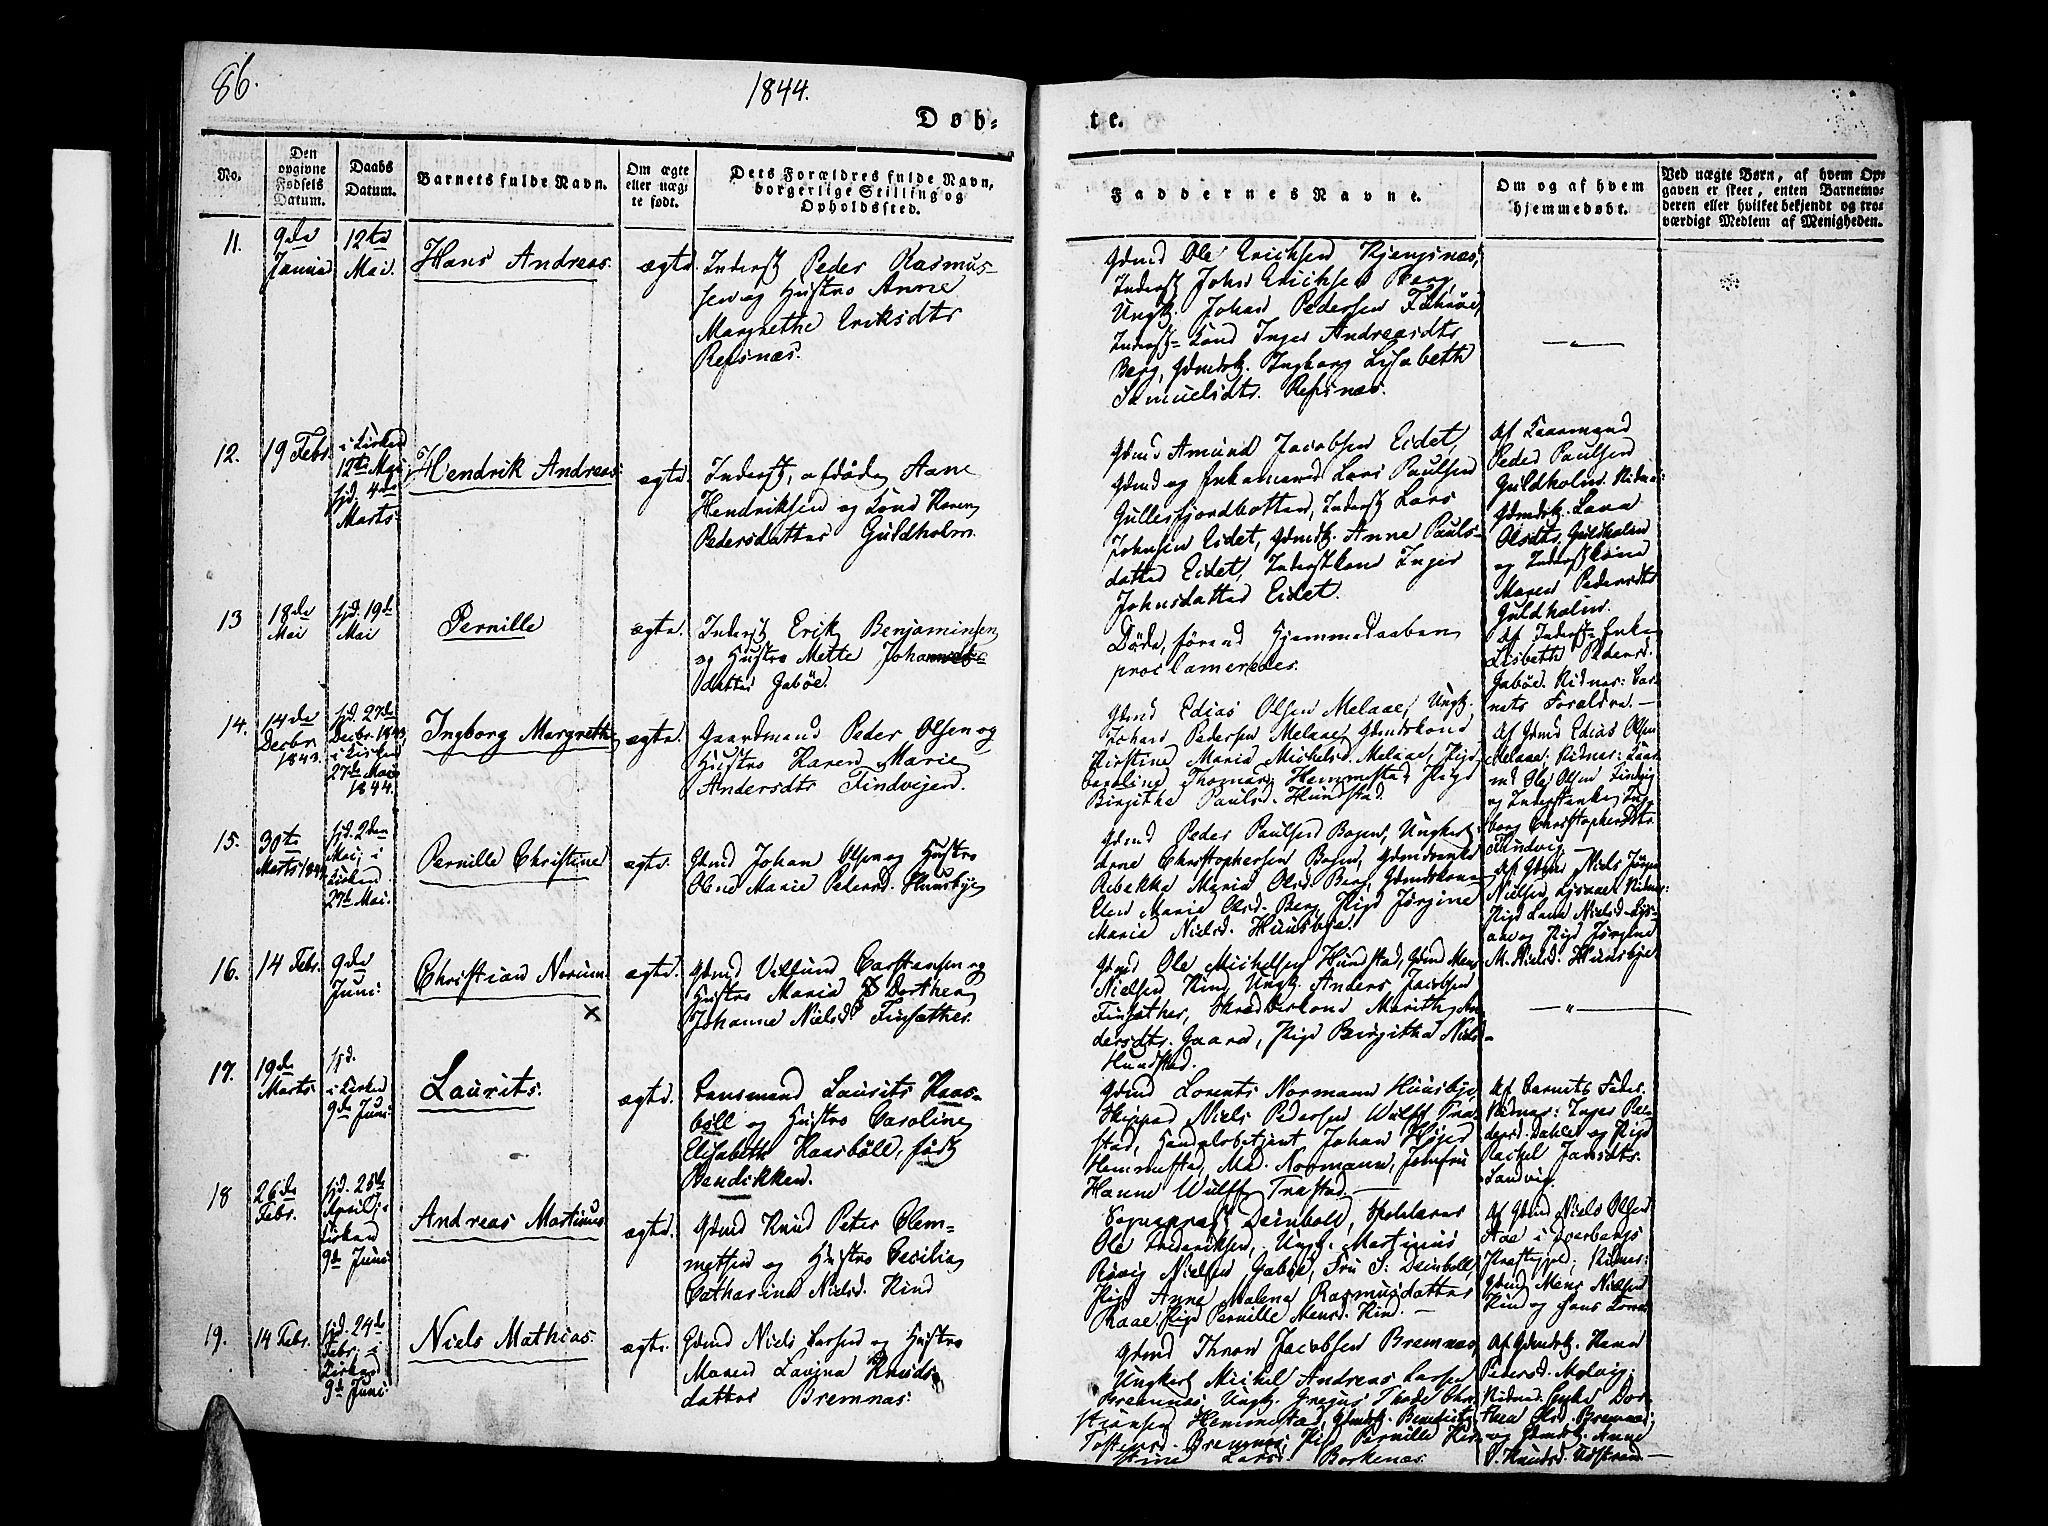 86.
1844.
Døb-
te.
No.
Den
opgivne
Fødsels
Datum.
Daabs
Datum.
Barnets fulde Navn.
Om ægte
eller uæg-
te født.
Dets Forældres fulde Navn,
borgerlige Stilling og
Opholdssted.
Faddernes Navne.
Om og af hvem
hjemmedøbt.
Ved uægte Børn, af hvem Op-
gaven er skeet, enten Barnemo-
deren eller hvilket bekjendt og tro-
værdigt Medlem af Menigheden.
11.
9de
12te
Mai.
Hans Andreas.
ægte.
Inderst Peder Rasmus-
sen og Hustro Anne
Margrethe Eriksdtr
Refsnæs.
Gdmd Ole Erichsen
Inderst John Erichsen Berg,
Ungk. Johan Pedersen
Inderst-Kone Inger Andreasdtr
Berg, Gdmdsk. Ingborg Elisabeth
Samuelsdtr. Refsnæs.
12.
19 Febr.
i Kirken
12te Mai
hjd. 4de
Marts.
Hendrik Andreas.
ægte.
Inderst, afdøde Aane
Hendriksen og Kone Karen
Pedersdatter Guldholm.
Gdmd Amund Jacobsen Eidet,
Gdmd og Enkemand Lars Paulsen
Gullesfjordbotten, Inderst Lars
Johnsen Eidet, Gdmdsk. Anne Pauls-
datter Eidet, Inderstkone Inger
Johnsdatter Eidet.
Af Kaarmand
Peder Paulsen
Guldholm. Vidner:
Gdmdsk. Lava
Olsdtr. Guldholm
og Inderstkone
Maren Pedersdtr
Guldholm.
13
18de
Mai
hjd. 19de
Mai
Pernille
ægte.
Inderst Erik Benjaminsen
og Hustro Mette Johannes
datter Gabøe.
Døde, førend Hjemmedaaben
proclameredes.
Af Inderst-Enke
Lisbeth Pedersd.
Gabøe. Vidner: Bar-
nets Forældre.
14.
14de
Decbr
1843.
hjd. 27de
Decbr. 1843,
i Kirken
27de Mai
1844.
Ingborg Margrethe
ægte.
Gaardmand Peder Olsen og
Hustro Karen Marie
Andersdtr Tindvigen.
Gdmd Edias Olsen Melaae, Ungk.
Johan Pedersen Melaae, Gdmdskone
Kirstine Maria Michelsd. Melaae, Pige
Caroline Thomasd. Hemmestad, Pige
Birgithe Paulsd. Hundstad.
Af Gdmd Edias Olsen
Melaae; Vidner: Kaar-
md Ole Olsen Tindvig
og Inderstenke Ing-
borg Christophersdtr
Tindvig.
15.
30te
Marts 1844.
hjd. 2den
Mai, i
Kirken
27de Mai.
Pernille Christine
ægte.
Gdmd Johan Olsen og Hustro
Olene Marie Petersd. Huusbye
Gdmd Peder Paulsen Bogen, Ungkerl
Arne Christophersen Bogen, Gdmdsenke
Rebekka Maria Olsd. Berg, Gdmdskone
Elen Marie Olsd. Berg, Pige Jørgine
Maria Nielsd. Huusbye.
Af Gdmd Niels Jørgen
Nielsen Vidner:
Pige Lava Nielsd.
og Pige Jørgine
M. Nielsd. Huusbye
16.
14 Febr.
9de
Juni.
Christian Norum.
x
ægte.
Gdmd Villum Carstensen og
Hustro Maria Dorthea
Johanne Nielsd. Finsæther.
Gdmd Ole Michelsen Hundstad, Gdmd Mens
Nielsen Kind, Ungk. Anders Jacobsen
Finsæther, Skrædderkone Marithe An-
dersdtr. Gaara, Pige Birgitha Niels-
Hundstad.
17.
19de
Marts.
hjd.
i Kirken
9de Juni.
Laurits.
ægte.
Lensmand Laurits Haas-
böll og Hustro Caroline
Elisabeth Haasböll, født
Bendikken.
Gdmd Lorents Normann Huusbye,
Skipper Niels Pedersen Wulff Tra-
stad, Handelsbetjent Johan Höjer
Hemmestad, Mad. Normann, Jomfru
Hanne Wulff Trastad.
Af Barnets Fader.
Vidner: Inger Pe-
dersd. Dahle og Pige
Rachel Jansdtr.
Sandvig.
18
26de
Febr.
hjd. 25de
April, i
Kirken
9de Juni.
Andreas Martinus
ægte.
Gdmd Knud Peter Clem-
metsen og Hustro Cecilia
Catharina Nielsd. Kind
Sogneprest Deinboll, Skolelærer
Ole Frederiksen, Ungk. Martinus
Røvig Nielsen Gabøe, Fru S. Deinboll,
Pige Anne Malena Rasmusdatter
Raae, Pige Pernille Mensd. Kind.
Af Gdmd Niels Olsen
i Qværbergs
Præstegjeld; Vidner:
Gdmd Mens Nielsen
Kind og Hans Kone.
19.
14 Febr.
hjd. 24de
Febr., i
Kirken
9de Juni.
Niels Mathias.
ægte.
Gdmd Niels Larsen og Hustro
Maren Lavina Knuds-
datter Bremnæs.
Gdmd Thron Jacobsen Bremnæs,
Ungkerl Michel Andreas Larsen
Bremnæs, Ungk. Grejus Thode Chri-
stiansen Hemmestad, Gdmdsk. Benedicte
Tostensd. Bremnæs, Pige Pernille Kir-
stine Larsd. Borkenæs.
Af Gdmdsk. Hanna
Petersd. Melvig;
Vidner: Enke Dor-
thea Olsd. Bremnæs,
og Gdmdsk. Anne
P. Knudsd.